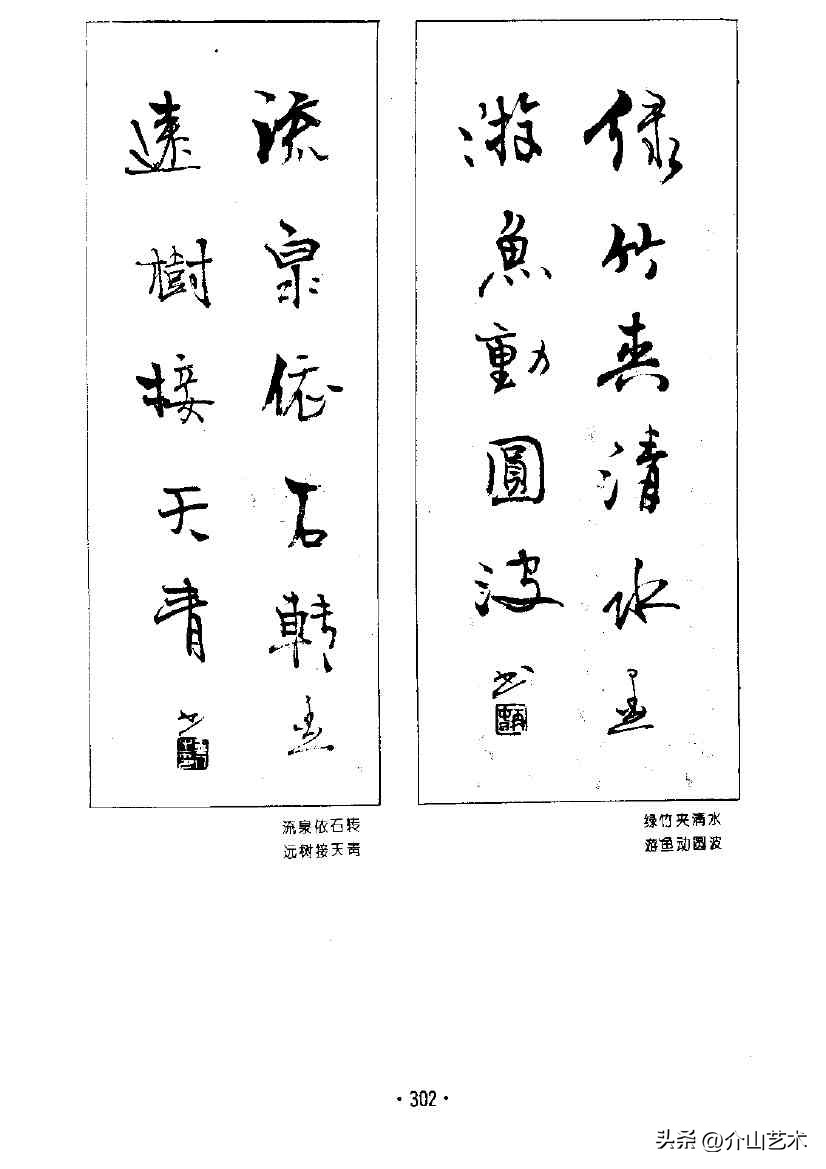 绿竹夹清水
游魚動圓波
书
流泉依石轉
遠樹接天青
书
绿竹夹清水
游鱼动圆波
流泉依石转
远树接天青
·302·
头条 @介山艺术